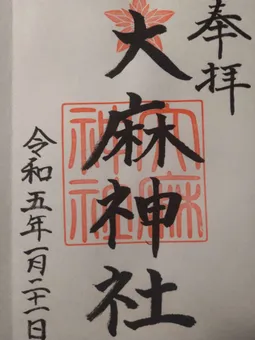 奉拝
大麻神社
令和五年一月二十一日
大麻
神社